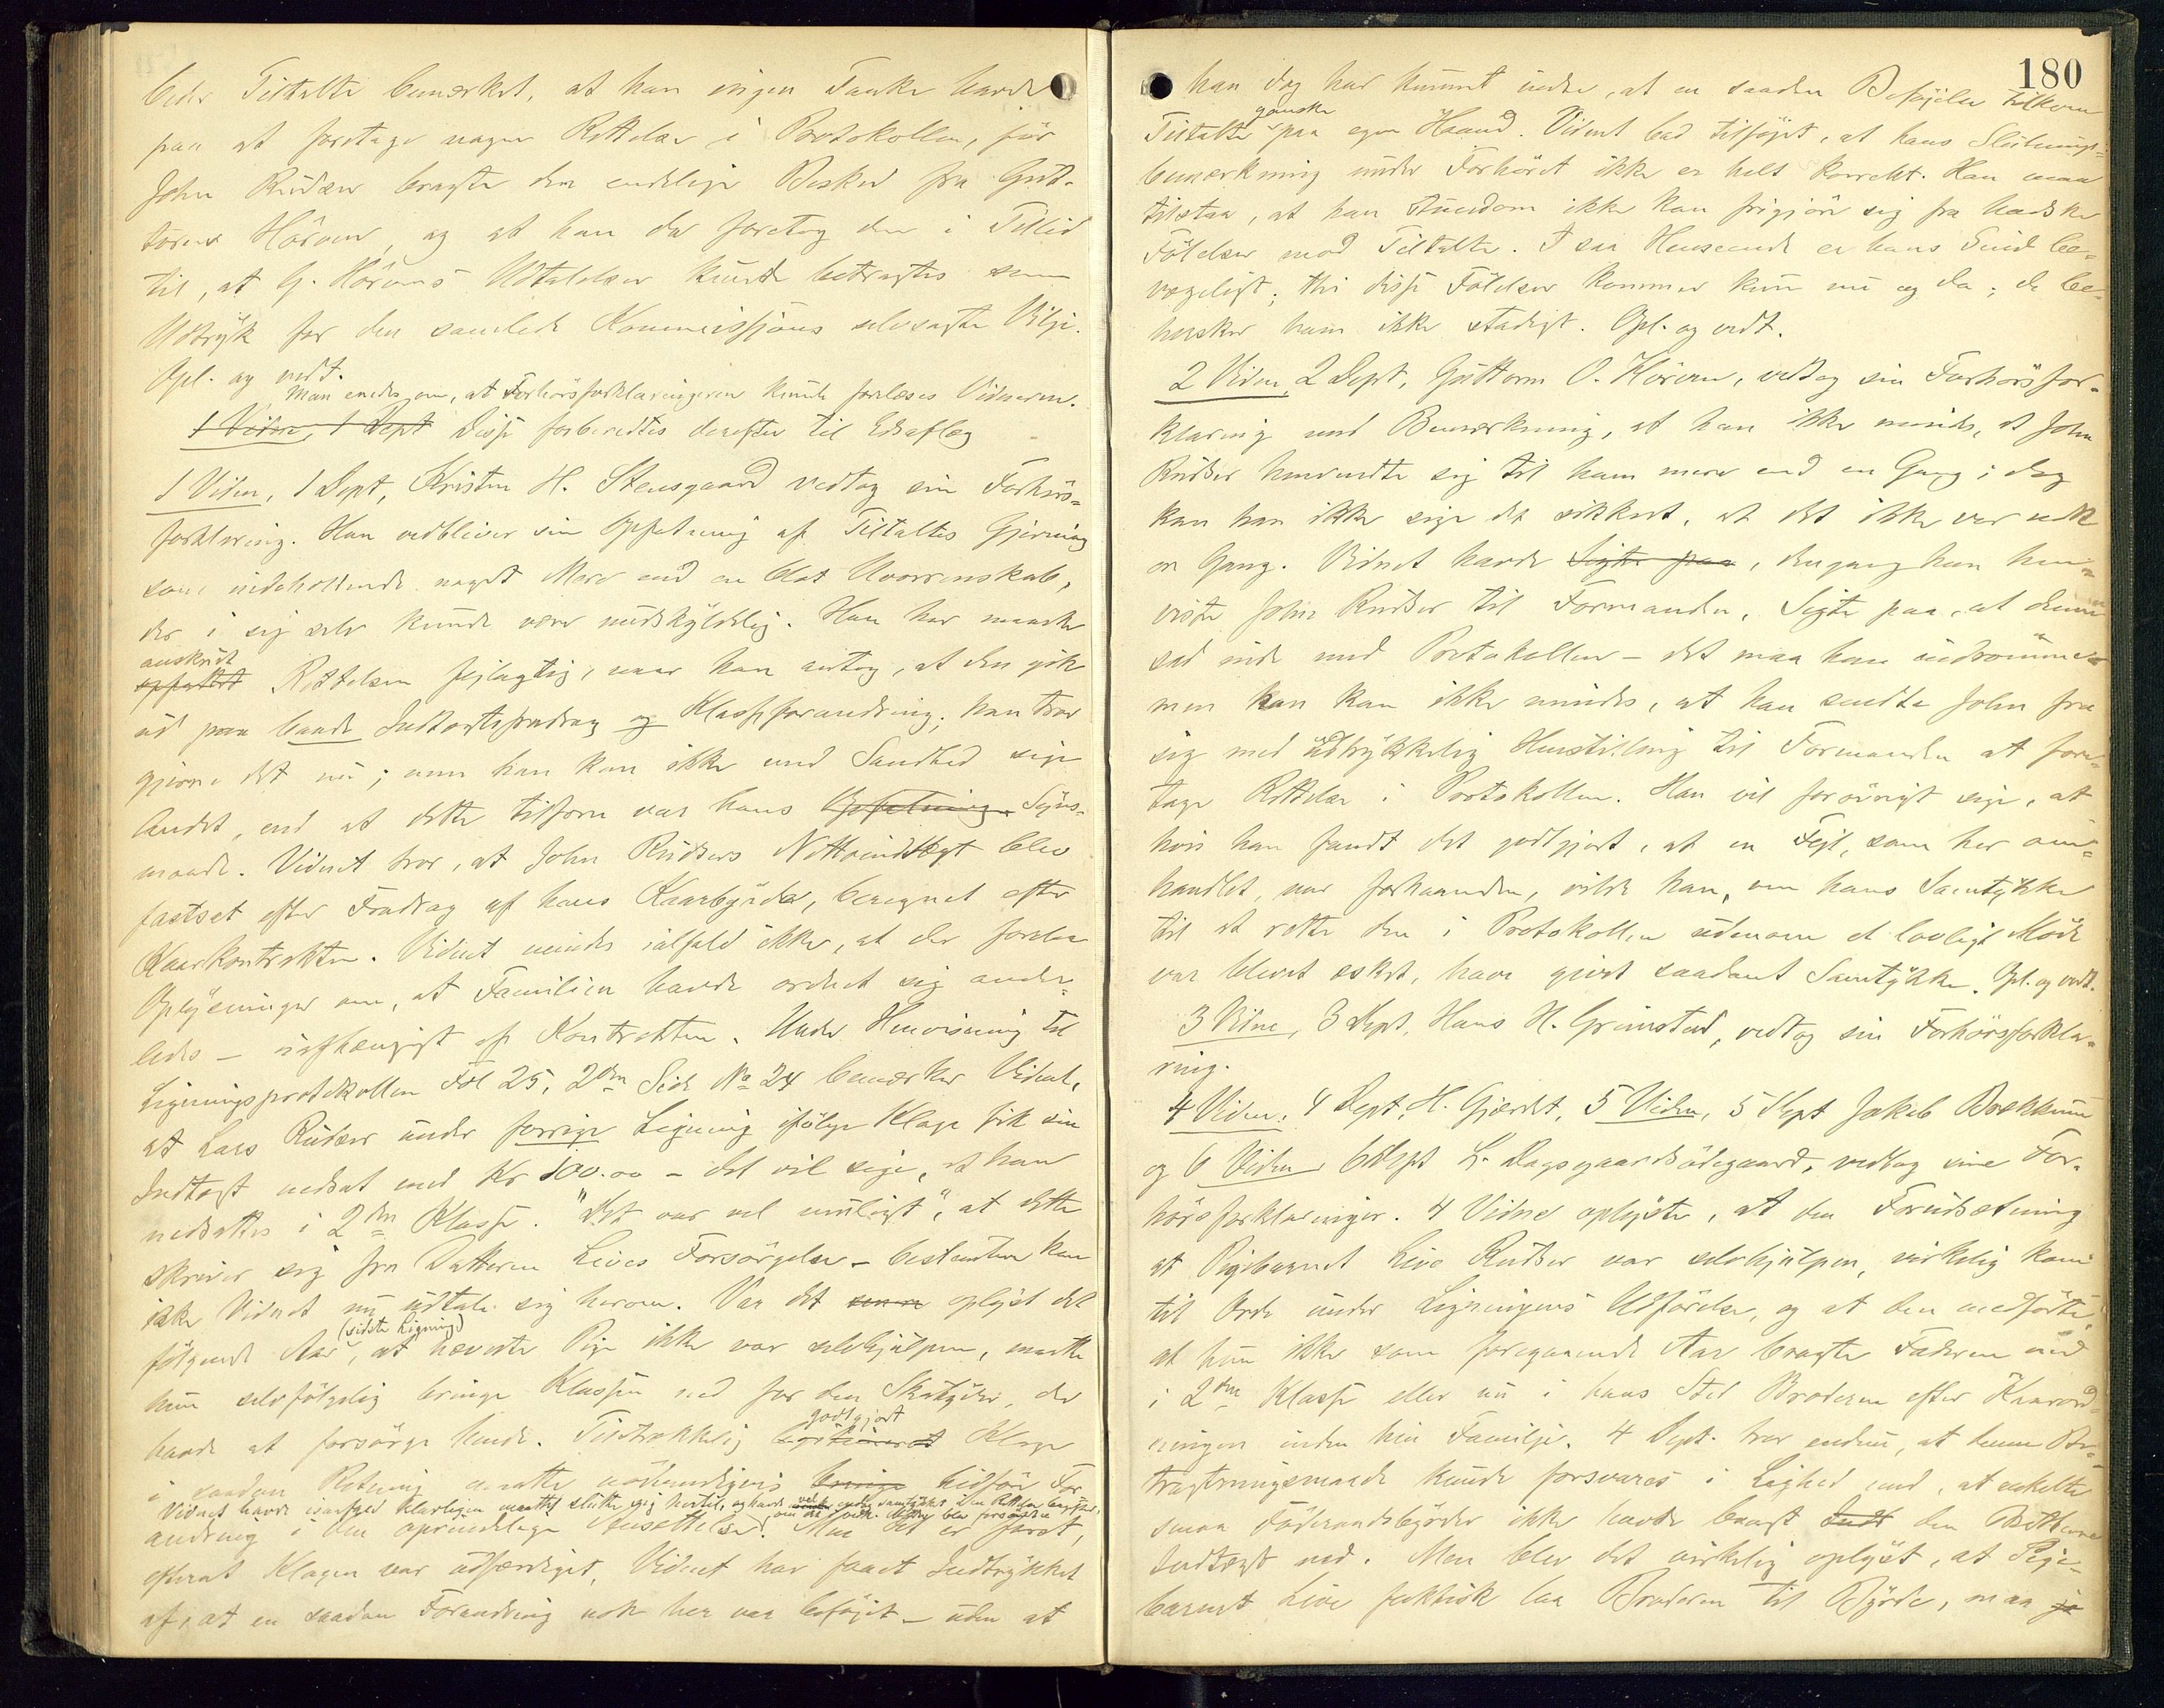 beder Tiltalte bemærket, at han ingen Tanke havde
paa at foretage nogen Rettelse i Protokollen, før
John Rudser bragte den endelige Besked fra Gut-
torm Hörven, og at han da foretog den i Tillid
til, at G. Hörvens Udtalelser kunde betragtes som
Udtryk for den samlede Kommissjons Vilje.
Opl. og vedt.
Man enedes om, at Forhörsforklaringerne kunde forelæses Vidnerne.
1 Vidne, 1 Dept Disse forberedtes derefter til Edsaflæg
1 Vidne, 1 Dept, Kristen H. Stensgaard vedtog sin Forhörs-
forklaring. Han vedbliver sin Opfatning af Tiltaltes Gjerning
som indeholdende noget Mere end en blot Uvorrenskab,
der i sig selv kunde være undskyldelig. Han har maaske
anskuet
opfattet Rettelsen fejlagtig, naar han antog, at den gik
ud paa baade Indtægtsfradrag og Klasseforandring; han tror
gjerne det nu; men han kan ikke med Sandhed sige
Andet, end at dette tilforn var hans Opfatning. Syns-
maade. Vidnet tror, at John Rudsers Nettoindtægt blev
fastsat efter Fradrag af hans Kaarbyrde, beregnet efter
Kaarkontrakten. Vidnet mindes ialfald ikke, at der forelaa
Oplysninger om, at Familien havde ordnet sig ander-
ledes – uafhængigt af Kontrakten. Under Henvisning til
Ligningsprotokollen Fol 25, 2den Side No 24 bemærker Vidnet,
at Lars Rudser under forrige Ligning ifölge Klage fik sin
Indtægt nedsat med Kr 100.00 – det vil sige, at han
nedsattes i 2den Klasse. "Det var vel muligt", at dette
skriver sig fra Datteren Lives Forsörgelse – bestemtere kan
ikke Vidnet nu udtale sig herom. Var det senere oplyst det
(sidste Ligning)
fölgende Aar, at nævnte Pige ikke var selvhjulpen, maatte
hun selvfölgelig bringe Klassen ned for den Skatyder, der
havde at forsörge hende. Tilstrækkelig
godtgjort
Klage
i saadan Retning maatte nödvendigvis bringe bidföre For-
Vidnet havde isaafald klarligen maattet slutte sig hertil, og havde vel endog samtykket i den Rettelse
andring i den oprindelige Ansættelse. Men det er först,
efterat Klagen var udfærdiget, Vidnet har faaet Indtrykket
af, at en saadan Forandring nok her var beföjet – uden at
180
han dog har kunnet indse, at en saadan Beföjelse tilkom
ganske
Tiltalte paa egen Haand. Vidnet bad tilföjet, at hans Slutnings-
bemærkning under Forhöret ikke er helt korrekt. Han maa
tilstaa, at han stundom ikke kan frigjöre sig fra hadske
Fölelser mod Tiltalte. I saa Henseende er hans Sind be-
vægeligt; thi disse Fölelser kommer kun nu og da; de be-
hersker ham ikke stadigt. Opl. og vedt.
2 Vidne, 2 Dept, Guttorm O. Hörven, vedtog sin Forhörsfor-
klaring med Bemærkning, at han ikke mindes, at John
Rudser henvendte sig til ham mere end en Gang; dog
kan han ikke sige det sikkert, at det ikke var
en Gang. Vidnet havde Sigte paa, dengang han hen-
viste John Rudser til Formanden, Sigte paa, at denne
sad inde med Protokollen – det maa han indrömme –
men han kan ikke mindes, at han sendte John fra
sig med udtrykkelig Henstilling til Formanden at fore-
tage Rettelse i Protokollen. Han vil forövrigt sige, at
hvis han fandt det godtgjort, at en Fejl, som her om-
handlet, var forhaanden, vilde han, om hans Samtykke
til at rette den i Protokollen udenom et lovligt Möde
var blevet æsket, have givet saadant Samtykke. Opl. og vedt.
3 Vidne, 3 Dept. Hans H. Grimstad, vedtog sin Forhörsforkla-
ring.
4 Vidne, 4 Dept, H. Gjærdet, 5 Vidne, 5 Dept Jakob Bækkum
og 6 Vidne, 6 Dept L. Dagsgaardsödegaard, vedtog sine For-
hörsforklaringer. 4 Vidne oplyste, at den Forudsætning
at Pigebarnet Live Rudser var selvhjulpen, virkelig kom
til Orde under Ligningens Udförelse, og at den medförte,
at hun ikke som foregaaende Aar bragte Faderen ned
i 2den Klasse eller nu i hans Sted Broderen efter Kaarord-
ningen inden hin Familje. 4 Dept. tror endnu, at denne Be-
tragtningsmaade kunde forsvares i Lighed med, at enkelte
smaa Föderaadsbyrder ikke havde bragt Indt den
Indtægt ned. Men blev det virkelig oplyst, at Pige-
barnet Live faktisk laa Broderen til Byrde, maa jo